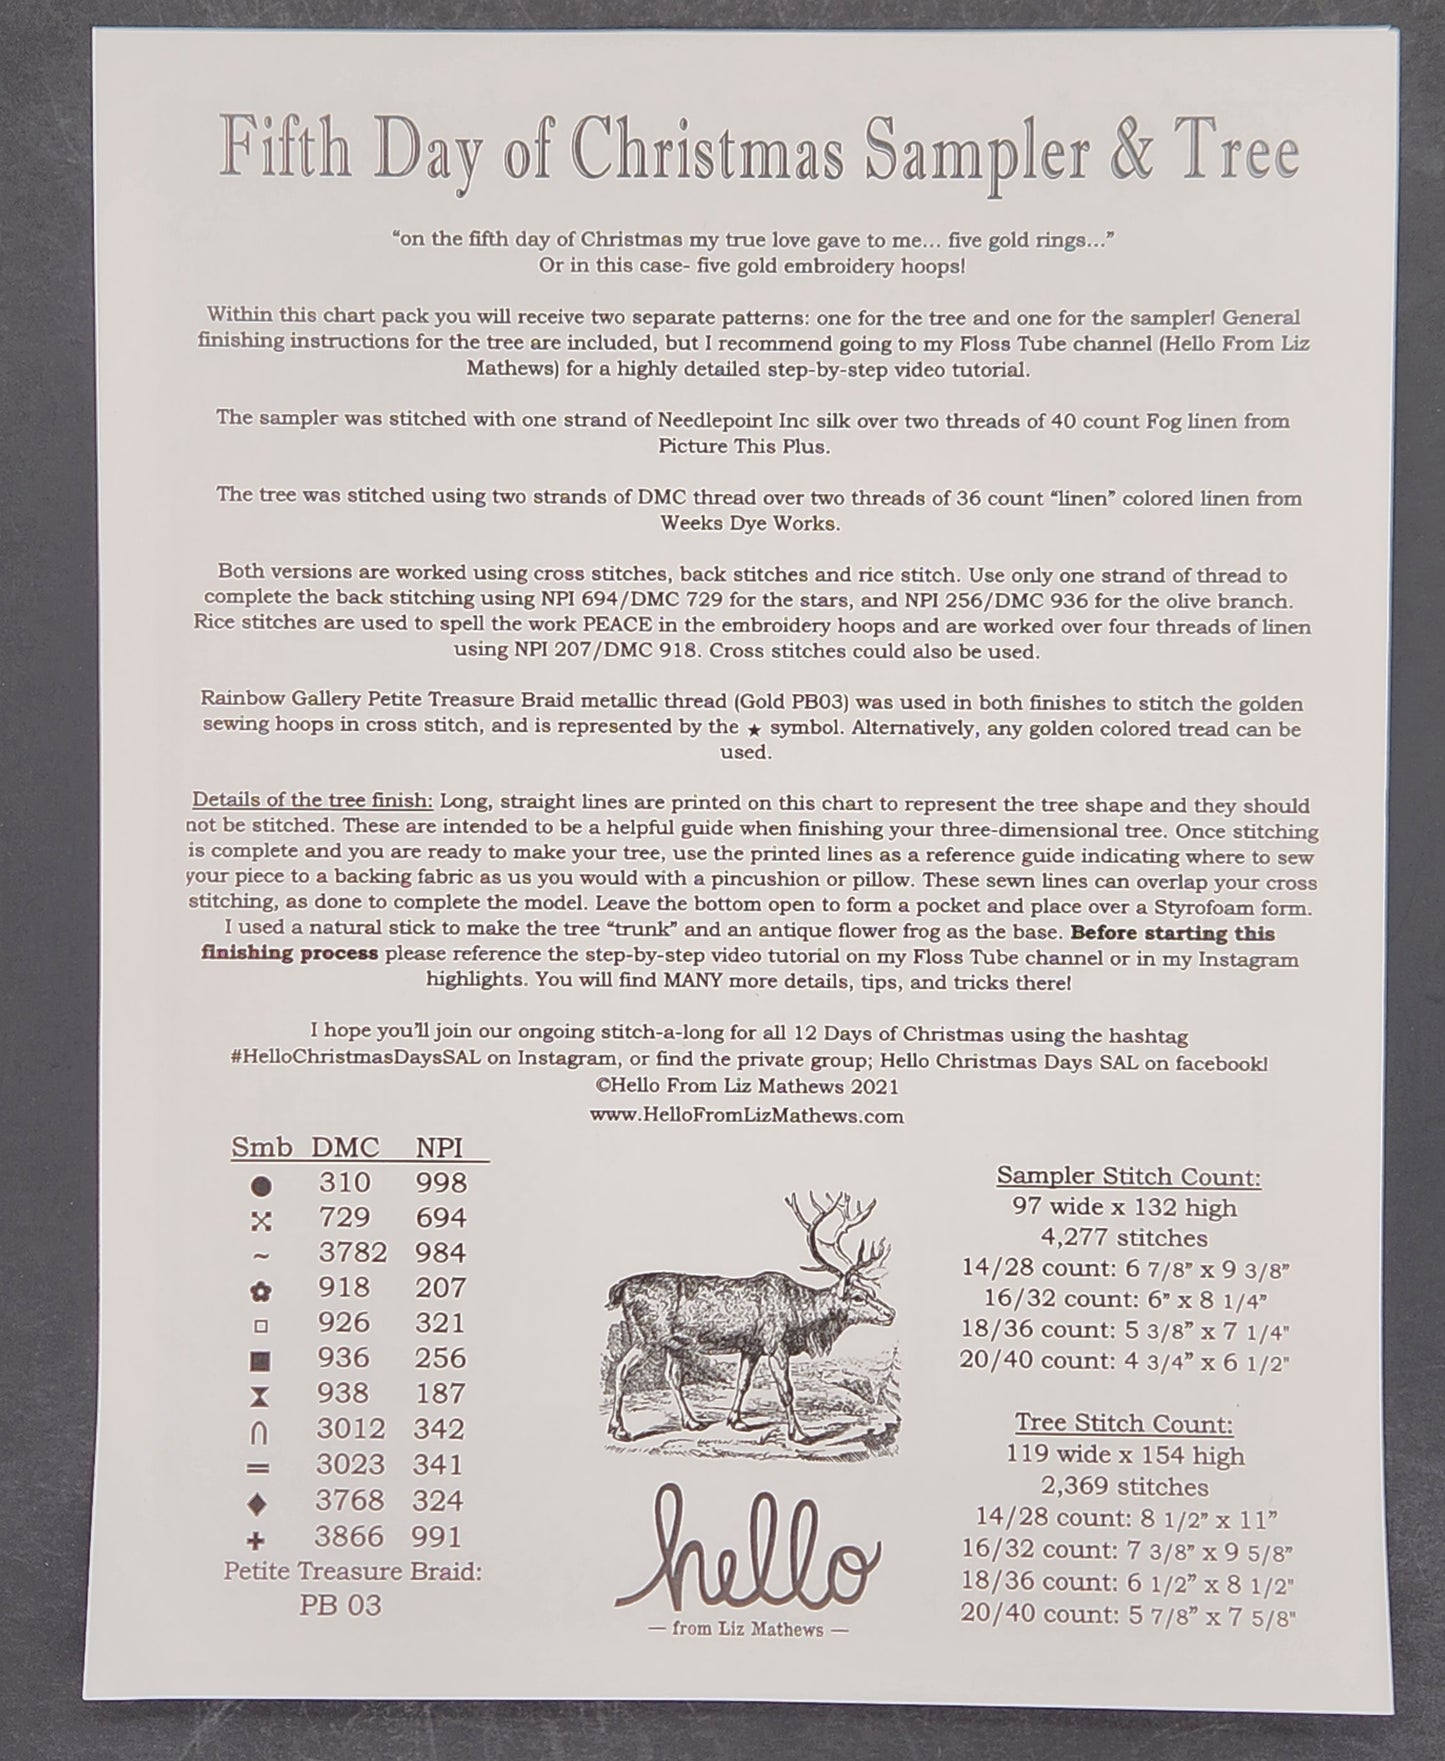 Fifth Day of Christmas Sampler & Tree
“on the fifth day of Christmas my true love gave to me... five gold rings...”
Or in this case- five gold embroidery hoops!
Within this chart pack you will receive two separate patterns: one for the tree and one for the sampler! General
finishing instructions for the tree are included, but I recommend going to my Floss Tube channel (Hello From Liz
Mathews) for a highly detailed step-by-step video tutorial.
The sampler was stitched with one strand of Needlepoint Inc silk over two threads of 40 count Fog linen from
Picture This Plus.
The tree was stitched using two strands of DMC thread over two threads of 36 count “linen” colored linen from
Weeks Dye Works.
Both versions are worked using cross stitches, back stitches and rice stitch. Use only one strand of thread to
complete the back stitching using NPI 694/DMC 729 for the stars, and NPI 256/DMC 936 for the olive branch.
Rice stitches are used to spell the work PEACE in the embroidery hoops and are worked over four threads of linen
using NPI 207/DMC 918. Cross stitches could also be used.
Rainbow Gallery Petite Treasure Braid metallic thread (Gold PB03) was used in both finishes to stitch the golden
sewing hoops in cross stitch, and is represented by the ★ symbol. Alternatively, any golden colored tread can be
used.
Details of the tree finish: Long, straight lines are printed on this chart to represent the tree shape and they should
not be stitched. These are intended to be a helpful guide when finishing your three-dimensional tree. Once stitching
is complete and you are ready to make your tree, use the printed lines as a reference guide indicating where to sew
your piece to a backing fabric as us you would with a pincushion or pillow. These sewn lines can overlap your cross
stitching, as done to complete the model. Leave the bottom open to form a pocket and place over a Styrofoam form.
I used a natural stick to make the tree “trunk” and an antique flower frog as the base. Before starting this
finishing process please reference the step-by-step video tutorial on my Floss Tube channel or in my Instagram
highlights. You will find MANY more details, tips, and tricks there!
I hope you’ll join our ongoing stitch-a-long for all 12 Days of Christmas using the hashtag
#HelloChristmasDaysSAL on Instagram, or find the private group; Hello Christmas Days SAL on facebook!
©Hello From Liz Mathews 2021
www.HelloFromLizMathews.com
Smb DMC NPI
● 310 998
729 694
~ 3782 984
✿ 918 207
□ 926 321
■ 936 256
⧗ 938 187
∩ 3012 342
= 3023 341
♦ 3768 324
✚ 3866 991
Petite Treasure Braid:
PB 03
hello
— from Liz Mathews —
Sampler Stitch Count:
97 wide x 132 high
4,277 stitches
14/28 count: 6 7/8” x 9 3/8”
16/32 count: 6” x 8 1/4”
18/36 count: 5 3/8” x 7 1/4"
20/40 count: 4 3/4” x 6 1/2"
Tree Stitch Count:
119 wide x 154 high
2,369 stitches
14/28 count: 8 1/2” x 11”
16/32 count: 7 3/8” x 9 5/8”
18/36 count: 6 1/2” x 8 1/2"
20/40 count: 5 7/8” x 7 5/8"